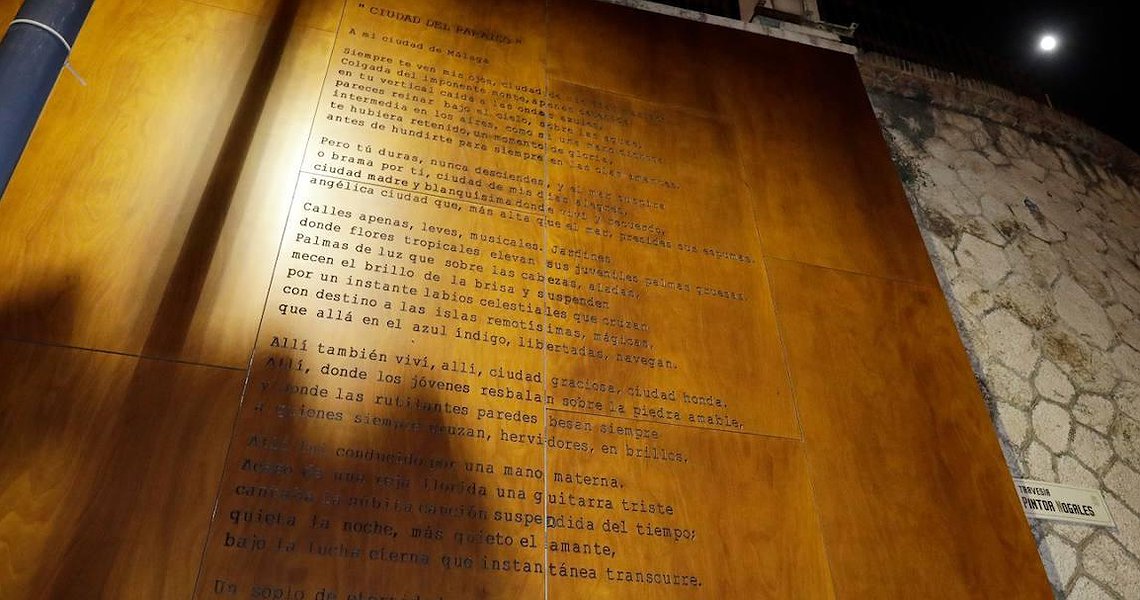 "CIUDAD DEL PARAÍSO"
A mi ciudad de Málaga
Siempre te ven mis ojos, ciudad de
Colgada del imponente monte, apenas
en tu vertical caída a las ondas azules,
pareces reinar bajo el cielo, sobre las aguas,
intermedia en los aires, como si una mano dichosa
te hubiera retenido, un momento de gloria,
antes de hundirte para siempre en las olas amantes.
Pero tú duras, nunca desciendes, y el mar suspira
o brama por ti, ciudad de mis días alegres,
ciudad madre y blanquísima donde viví y recuerdo,
angélica ciudad que, más alta que el mar, presides sus espumas.
Calles apenas, leves, musicales. Jardines
donde flores tropicales elevan sus juveniles palmas gruesas.
Palmas de luz que sobre las cabezas, aladas,
mecen el brillo de la brisa y suspenden
por un instante labios celestiales que cruzan
con destino a las islas remotísimas, mágicas,
que allá en el azul índigo, libertadas, navegan.
Allí también viví, allí, ciudad graciosa, ciudad honda.
Allí, donde los jóvenes resbalan sobre la piedra amable,
y donde las rutilantes paredes besan siempre
a quienes siempre cruzan, hervidores, en brillos.
Allí fui conducido por una mano materna.
Acaso de una reja florida una guitarra triste
cantaba la súbita canción suspendida del tiempo;
quieta la noche, más quieto el amante,
bajo la lucha eterna que instantánea transcurre.
Un soplo de eternidad
TRAVESIA
PINTOR NOGALES